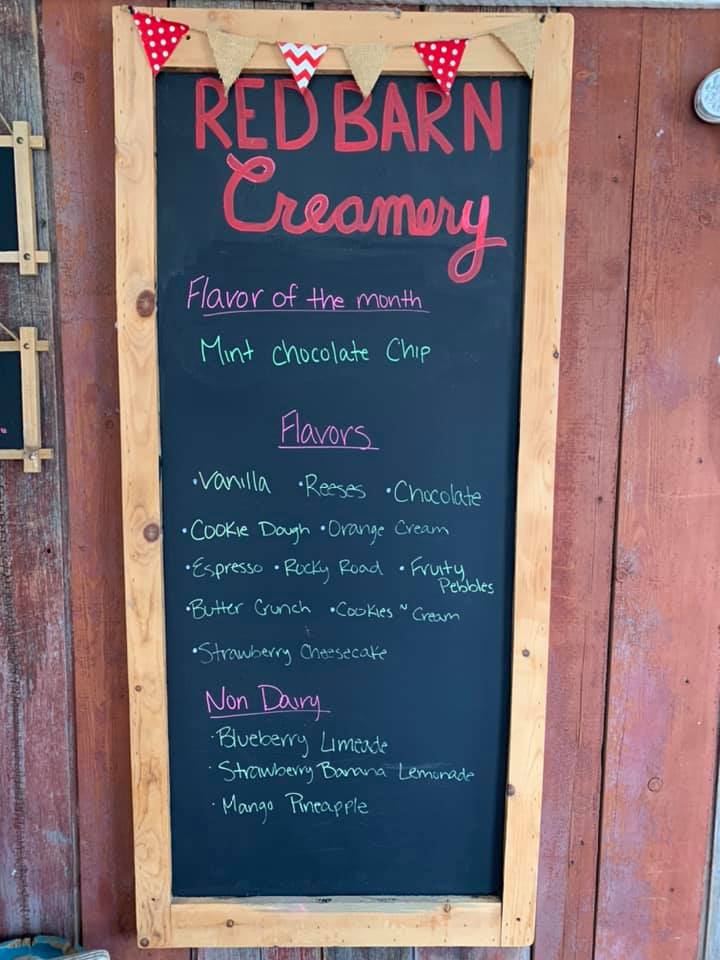 RED BARN
Creamery
Flavor of the month
Mint chocolate Chip
Flavors
•Vanilla •Reeses •Chocolate
•Cookie Dough •Orange Cream
•Espresso •Rocky Road •Fruity
Pebbles
•Butter Crunch •Cookies ~ Cream
•Strawberry Cheesecake
Non Dairy
•Blueberry Limeade
•Strawberry Banana Lemonade
•Mango Pineapple